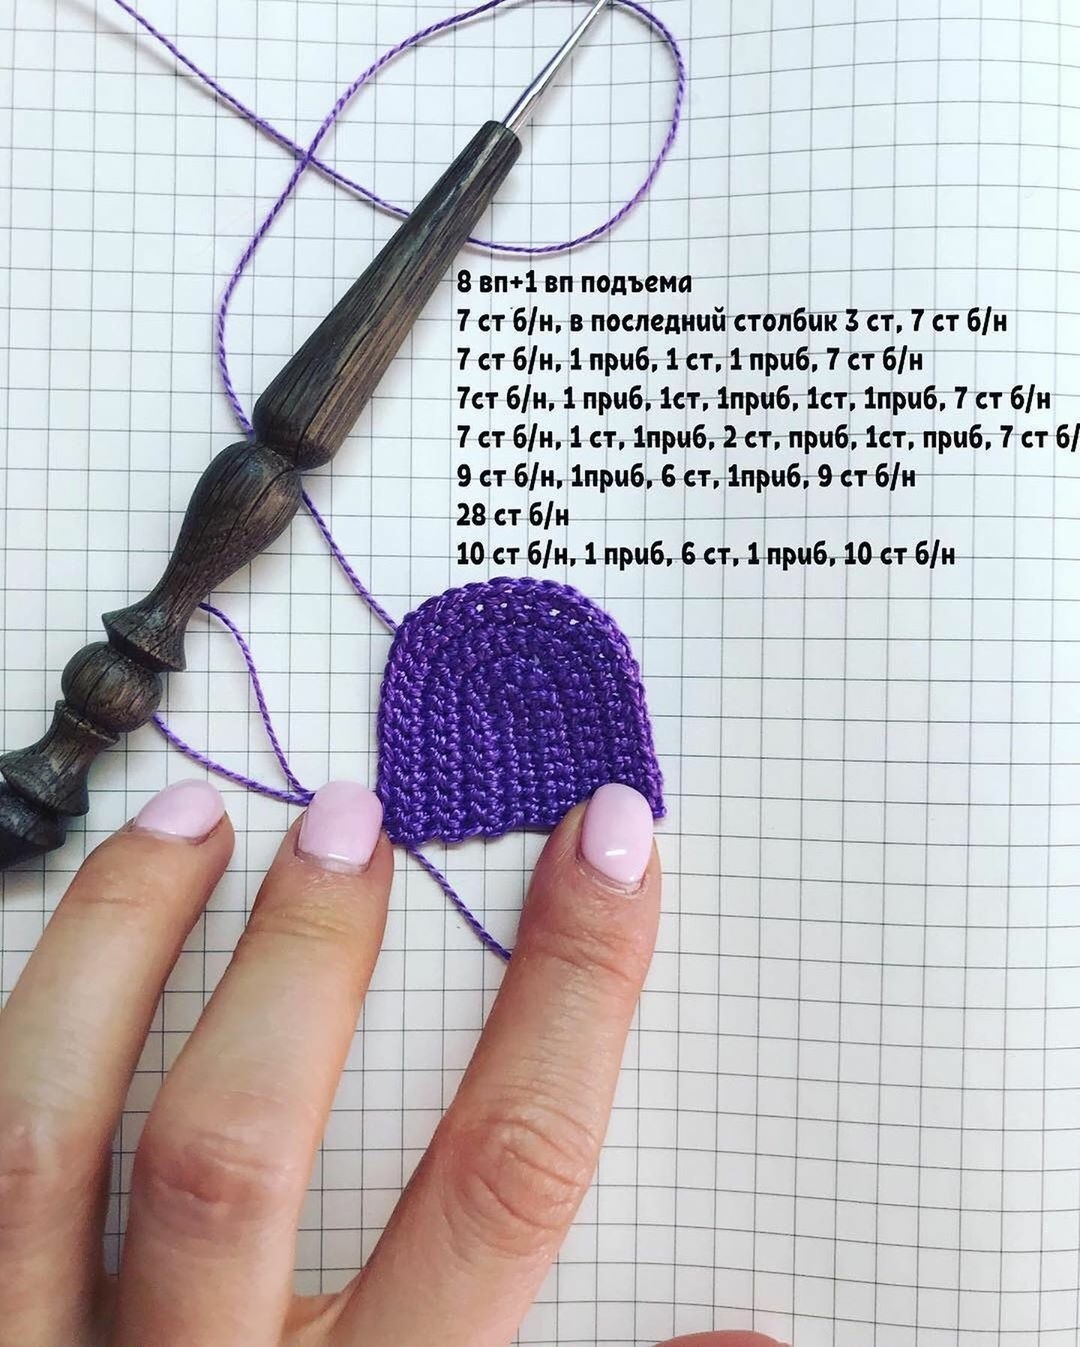 8 вп+1 вп подъема
7 ст б/н, в последний столбик 3 ст, 7 ст б/н
7 ст б/н, 1 приб, 1 ст, 1 приб, 7 ст б/н
7ст б/н, 1 приб, 1ст, 1приб, 1ст, 1приб, 7 ст б/н
7 ст б/н, 1 ст, 1приб, 2 ст, приб, 1ст, приб, 7 ст б/
9 ст б/н, 1приб, 6 ст, 1приб, 9 ст б/н
28 ст б/н
10 ст б/н, 1 приб, 6 ст, 1 приб, 10 ст б/н